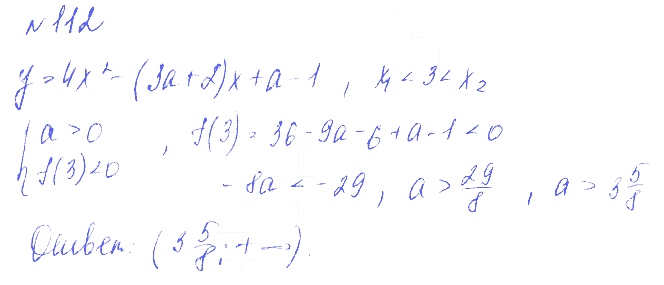 №112
y = 4x² - (3a+2)x + a - 1, x₁ < 3 < x₂
{ a > 0 , f(3) = 36 - 9a - 6 + a - 1 < 0
f(3) < 0 - 8a < -29, a > 29/8, a > 3 5/8
Ответ: (3 5/8; +∞).